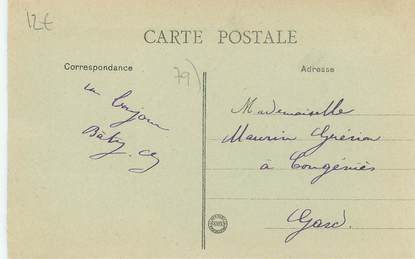 12€
CARTE POSTALE
Correspondance
Adresse
79)
un bonjour
Mademoiselle
Maurin
à Congéniès
Gard.